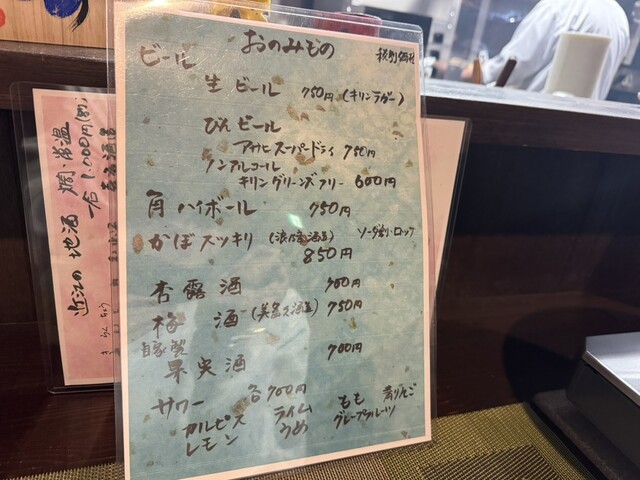 おのみもの
税別価格
ビール
生ビール 750円 (キリンラガー)
びんビール
アサヒスーパードライ 750円
ノンアルコール
キリングリーンズフリー 600円
角ハイボール 750円
かぼスッキリ ソーダ割・ロック
850円
杏露酒 700円
梅酒 750円
自家製
果実酒 700円
サワー 各700円
カルピス ライム もも 青りんご
レモン うめ グレープフルーツ
近江の地酒 燗・常温
一合 1,000円